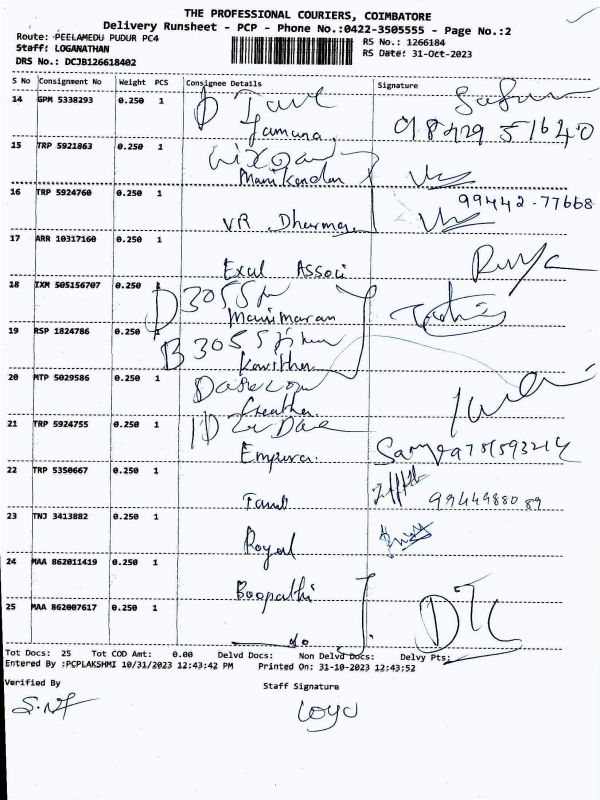 THE PROFESSIONAL COURIERS, COIMBATORE
Delivery Runsheet - PCP - Phone No.:0422-3505555 - Page No.:2
Route: PEELAMEDU PUDUR PC4
Staff: LOGANATHAN
DRS No.: DCJB126618402
RS No.: 1266184
RS Date: 31-Oct-2023
S No Consignment No Weight PCS Consignee Details Signature
14 GPM 5338293 0.250 1
Jamuna
98429 51640
15 TRP 5921863 0.250 1
Manikandan
16 TRP 5924760 0.250 1
99442-77668
VR Dharma
17 ARR 10317160 0.250 1
Excel Associ
18 IXM 505156707 0.250 1
D 3055
Manimaran
19 RSP 1824786 0.250 1
B 3055
Kavitha
20 MTP 5029586 0.250 1
21 TRP 5924755 0.250 1
Emperor
22 TRP 5350667 0.250 1
Tamil
9944988089
23 TNJ 3413882 0.250 1
Royal
24 MAA 862011419 0.250 1
Boopathi
25 MAA 862007617 0.250 1
do
DTC
Tot Docs: 25 Tot COD Amt: 0.00 Delvd Docs: Non Delvd Docs: Delvy Pts:
Entered By :PCPLAKSHMI 10/31/2023 12:43:42 PM Printed On: 31-10-2023 12:43:52
Verified By
Staff Signature